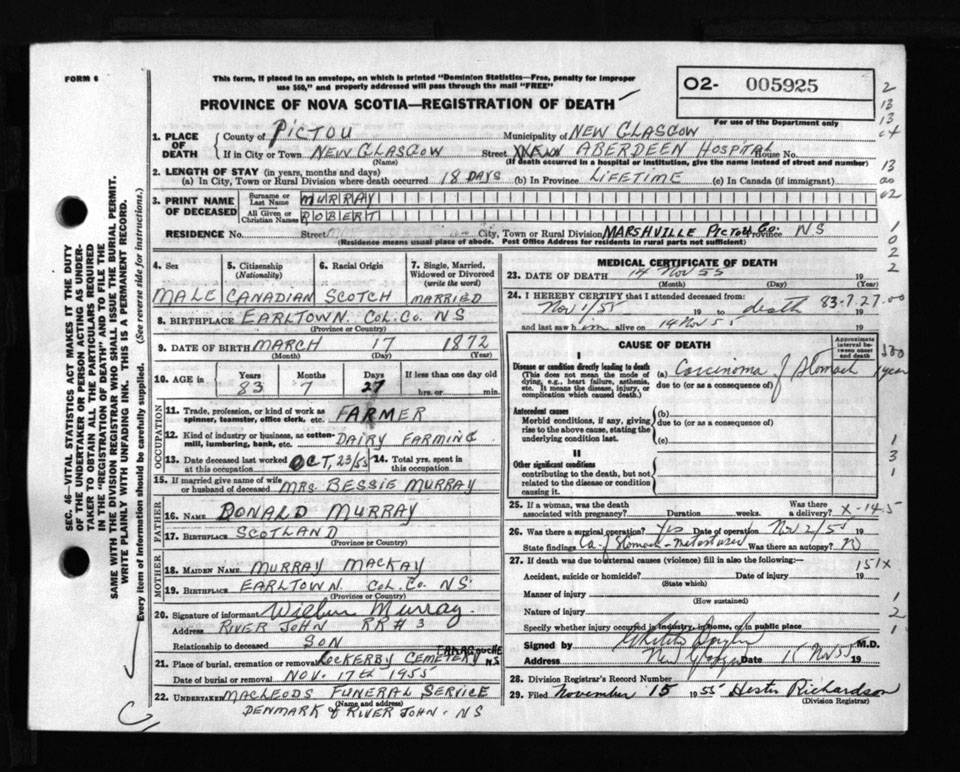 FORM 6
This form, if placed in an envelope, on which is printed "Dominion Statistics—Free, penalty for improper
use $50," and properly addressed will pass through the mail "FREE"
O2- 005925
For use of the Department only
PROVINCE OF NOVA SCOTIA—REGISTRATION OF DEATH
1. PLACE OF DEATH
County of PICTOU Municipality of NEW GLASGOW
If in City or Town NEW GLASGOW Street ABERDEEN HOSPITAL House No.
(Name) (If death occurred in a hospital or institution, give the name instead of street and number)
2. LENGTH OF STAY (in years, months and days)
(a) In City, Town or Rural Division where death occurred 18 DAYS (b) In Province LIFETIME (c) In Canada (if immigrant)
3. PRINT NAME OF DECEASED
Surname or Last Name MURRAY
All Given or Christian Names ROBERT
RESIDENCE No. Street City, Town or Rural Division MARSHVILLE PICTOU CO. Province NS
(Residence means usual place of abode. Post Office Address for residents in rural parts not sufficient)
4. Sex 5. Citizenship (Nationality) 6. Racial Origin 7. Single, Married, Widowed or Divorced (write the word)
MALE CANADIAN SCOTCH MARRIED
8. BIRTHPLACE EARLTOWN COL. CO. NS
(Province or Country)
9. DATE OF BIRTH MARCH 17 1872
(Month) (Day) (Year)
10. AGE in Years Months Days If less than one day old
83 7 27 hrs. or min.
OCCUPATION
11. Trade, profession, or kind of work as spinner, teamster, office clerk, etc. FARMER
12. Kind of industry or business, as cotton-mill, lumbering, bank, etc. DAIRY FARMING
13. Date deceased last worked at this occupation OCT. 23/55 14. Total yrs. spent in this occupation
15. If married give name of wife or husband of deceased MRS BESSIE MURRAY
FATHER
16. NAME DONALD MURRAY
17. BIRTHPLACE SCOTLAND
(Province or Country)
MOTHER
18. MAIDEN NAME MURRAY MACKAY
19. BIRTHPLACE EARLTOWN COL. CO. NS
(Province or Country)
20. Signature of informant Murray
Address RIVER JOHN RR# 3
Relationship to deceased SON
21. Place of burial, cremation or removal LOCKERBY CEMETERY TATAGOUCHE NS
Date of burial or removal NOV. 17th 1955
22. UNDERTAKER MACLEODS FUNERAL SERVICE
(Name and address)
DENMARK & RIVER JOHN - NS
MEDICAL CERTIFICATE OF DEATH
23. DATE OF DEATH 14 Nov 55 19
(Month) (Day) (Year)
24. I HEREBY CERTIFY that I attended deceased from:
Nov 1/55 19 to death 83-7-27-00 19
and last saw him alive on 14 Nov 55 19
CAUSE OF DEATH
Approximate interval between onset and death
I
Disease or condition directly leading to death
(This does not mean the mode of dying, e.g., heart failure, asthenia, etc. It means the disease, injury, or complication which caused death.)
(a) Carcinoma of Stomach 1 year
due to (or as a consequence of)
Antecedent causes
Morbid conditions, if any, giving rise to the above cause, stating the underlying condition last.
(b)
due to (or as a consequence of)
(c)
II
Other significant conditions
contributing to the death, but not related to the disease or condition causing it.
25. If a woman, was the death associated with pregnancy? Duration weeks. Was there a delivery? X-14.5
26. Was there a surgical operation? Yes Date of operation Nov 2/55
State findings Ca of Stomach - metastases Was there an autopsy? No
27. If death was due to external causes (violence) fill in also the following:—
151X
Accident, suicide or homicide? Date of injury 19
(State which)
Manner of injury
(How sustained)
Nature of injury
Specify whether injury occurred in industry, in home, or in public place
Signed by M.D.
Address New Glasgow Date 15 Nov 55 19
28. Division Registrar's Record Number
29. Filed November 15 1955 Hester Richardson
(Division Registrar)
SEC. 46—VITAL STATISTICS ACT MAKES IT THE DUTY
OF THE UNDERTAKER OR PERSON ACTING AS UNDER-
TAKER TO OBTAIN ALL THE PARTICULARS REQUIRED
IN THE "REGISTRATION OF DEATH" AND TO FILE THE
SAME WITH THE DIVISION REGISTRAR WHO SHALL ISSUE THE BURIAL PERMIT.
WRITE PLAINLY WITH UNFADING INK. THIS IS A PERMANENT RECORD.
Every item of Information should be carefully supplied. (See reverse side for instructions.)
2
13
13
13
20
02
1
0
2
2
1
3
1
1
2
1